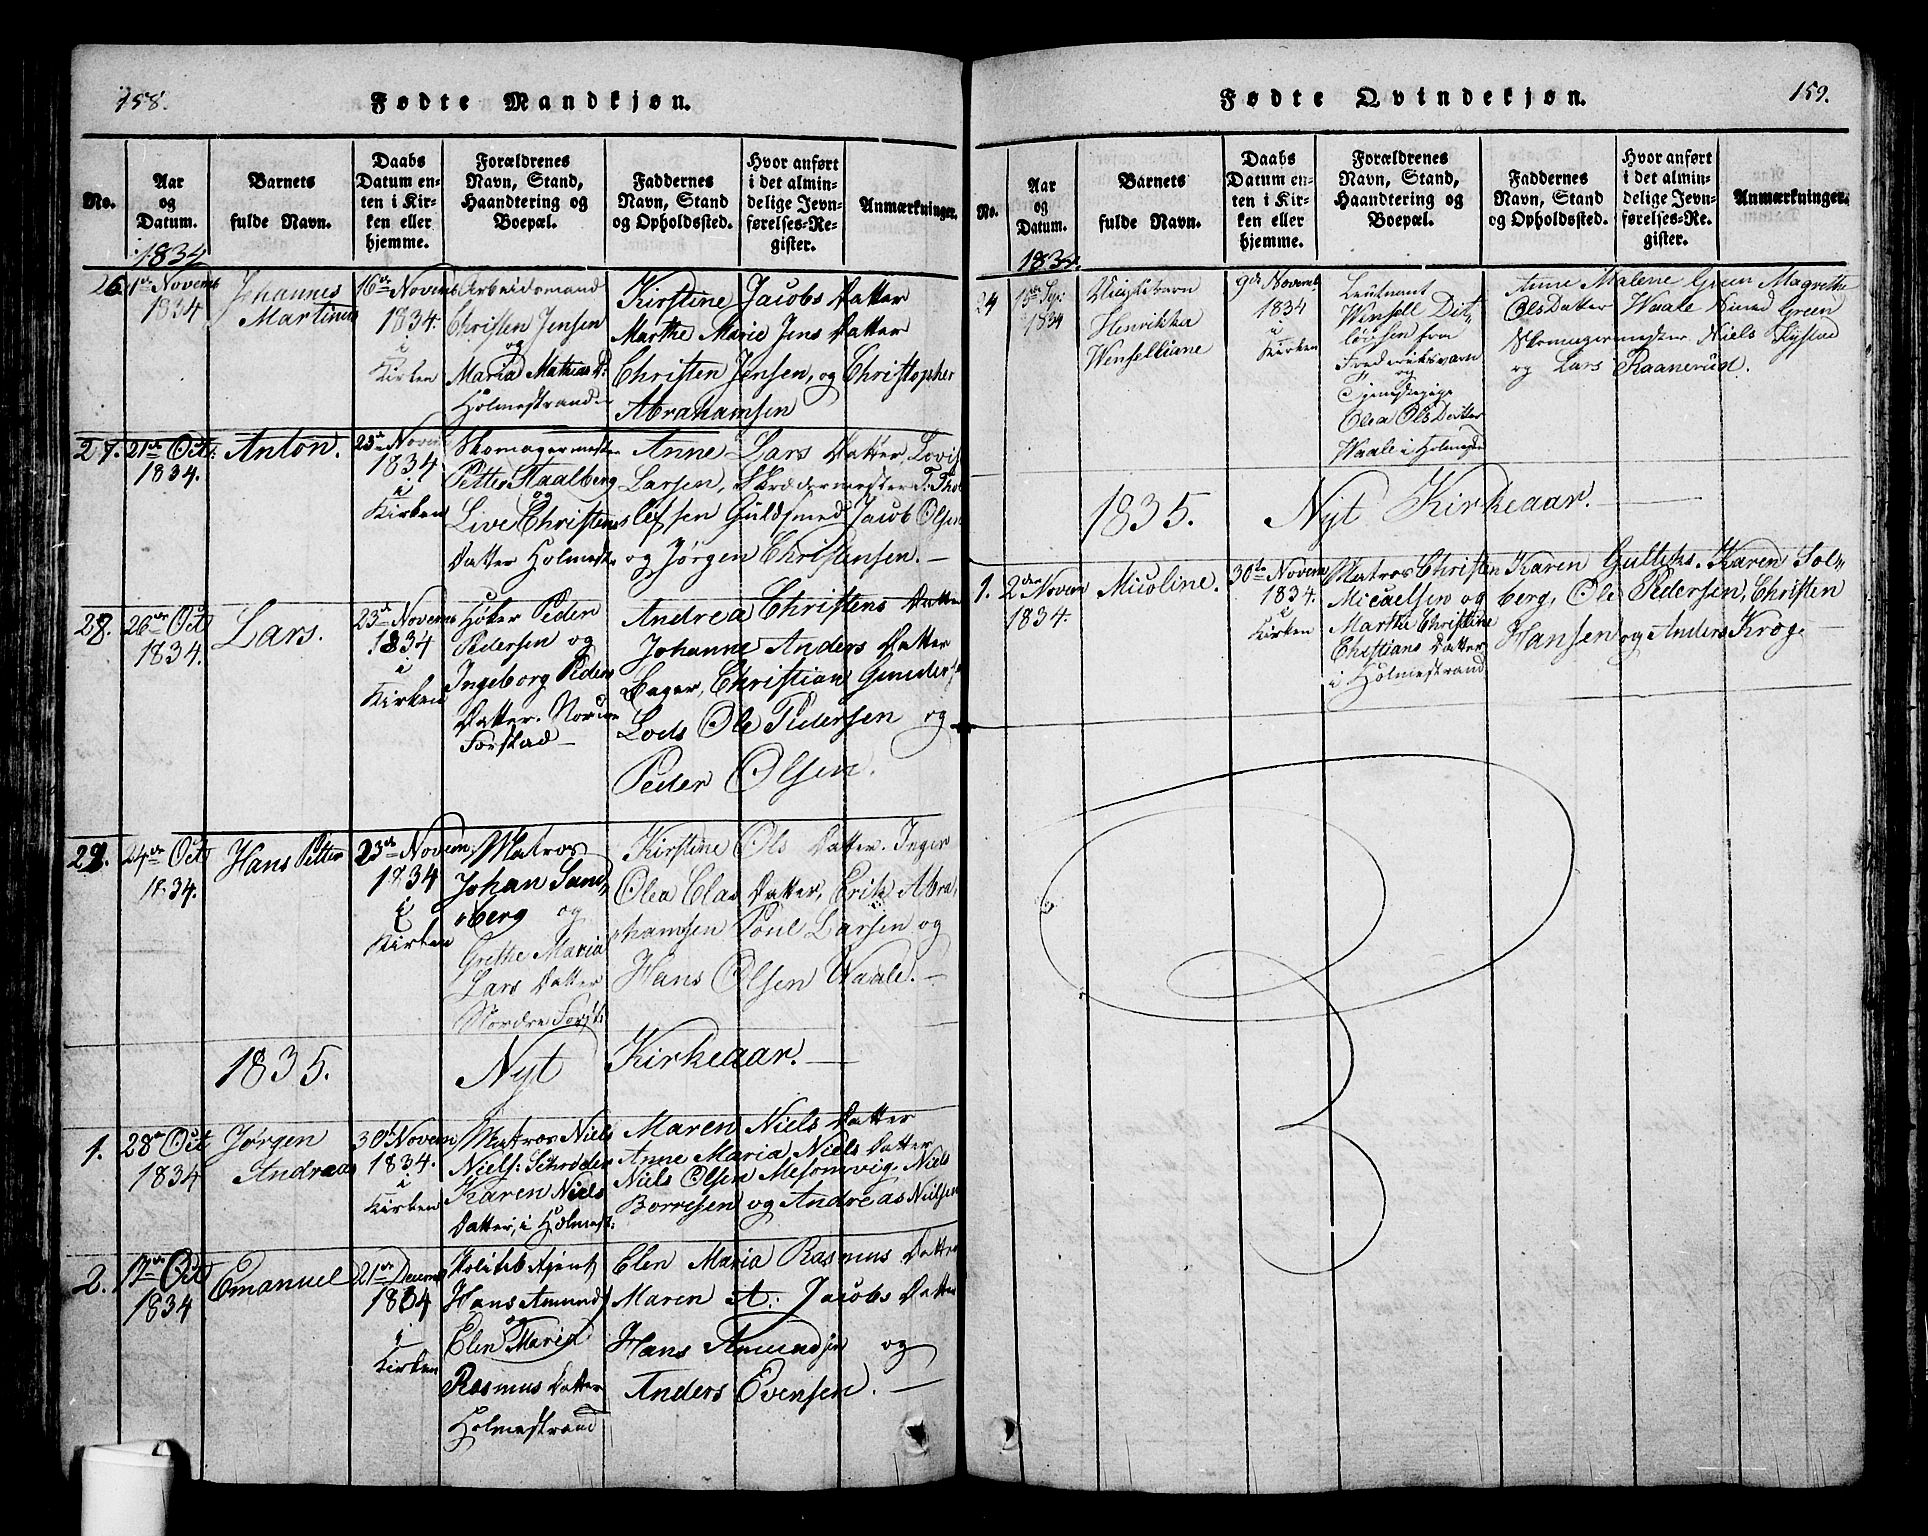 158.
Fødte Mandkjøn.
No.
Aar
og
Datum.
Barnets
fulde Navn.
Daabs
Datum en-
ten i Kir-
ken eller
hjemme.
Forældrenes
Navn, Stand,
Haandtering og
Boepæl.
Faddernes
Navn, Stand
og Opholdssted.
Hvor anført
i det almin-
delige Jevn-
førelses-Re-
gister.
Anmærkninger.
1834
26.
1ste Novem
1834
Johannes
Martinus
16de Novem
1834.
i
Kirken
Arbeidsmand
Christen Jensen
og
Maria Mathias D.
Holmestrand
Kirstine Jacobs Datter
Marthe Marie Jens Datter
Christen Jensen, og Christopher
Abrahamsen
27.
21de Oct.
1834.
Anton.
23de Novem
1834
i
Kirken
Skomagermester
Petter Staalberg
og
Live Christens
Datter Holmestr
Anne Lars Datter, Lovis
Larsen, Skrædermester T. Tho
lefsen Guldsmed Jacob Olsen
og Jørgen Christiansen.
28.
26de Oct
1834.
Lars.
23de Novem
1834
i
Kirken
Høker Peder
Pedersen og
Ingeborg Peders
Datter. Nordre
Forstad
Andrea Christens Datter
Johanne Anders Datter
Bager, Christian Gunders
Lods Ole Pedersen og
Peder Olsen.
29.
24de Oct
1834.
Hans Petter
23de Novem.
1834
i
Kirken
Matros
Johan Sand-
berg og
Grethe Maria
Lars Datter
Nordre Forst:
Kirstine Ols Datter. Inger
Olea Clas Datter, Erik Abra
hamsen Poul Larsen og
Hans Olsen Waale.
1835. Nyt Kirkeaar.
1.
28de Oct
1834
Jørgen
Andreas
30te Novem
1834.
i
Kirken
Matros Niels
Niels: Schrøder
Karen Niels
Datter, i Holmest:
Maren Niels Datter
Anne Maria Niels Datter
Niels Olsen Mesomvig, Niels
Borresen og Andreas Nielsen
2.
17de Oct
1834
Emanuel
21de Decem
1834
i
Kirken
Politebetjent
Hans Amunds
og
Elen Maria
Rasmus Datter
Holmestrand
Elen Maria Rasmus Datter
Maren A: Jacobs Datter
Hans Amundsen og
Anders Evensen.
159.
Fødte Qvindekjøn.
No.
Aar
og
Datum.
Barnets
fulde Navn.
Daabs
Datum en-
ten i Kir-
ken eller
hjemme.
Forældrenes
Navn, Stand,
Haandtering og
Boepæl.
Faddernes
Navn, Stand
og Opholdssted.
Hvor anført
i det almin-
delige Jevn-
førelses-Re-
gister.
Anmærkninger.
1834.
24
1834
Henrikka
Winselliane
9de Novemb
1834
i
Kirken
Leutnant
Winsell Dit-
løvsen fra
Frederiksværn
og
Tjenestepige
Olea Ols Datter
Waale i Holmestr
Anne Malene Green Magrethe
Ols Datter Waale Green
Skomagermester Niels
og Lars Raanerud.
1835. Nyt Kirkeaar.
1.
2den Novem
1834.
Nicoline.
30te Novem
1834.
i
Kirken
Matros Christen
Micaelsen og
Marthe Christine
Christians Datter
i Holmestrand
Karen Gullichs. Karen Sol-
berg, Ole Pedersen, Christen
Hansen og Anders Krog.